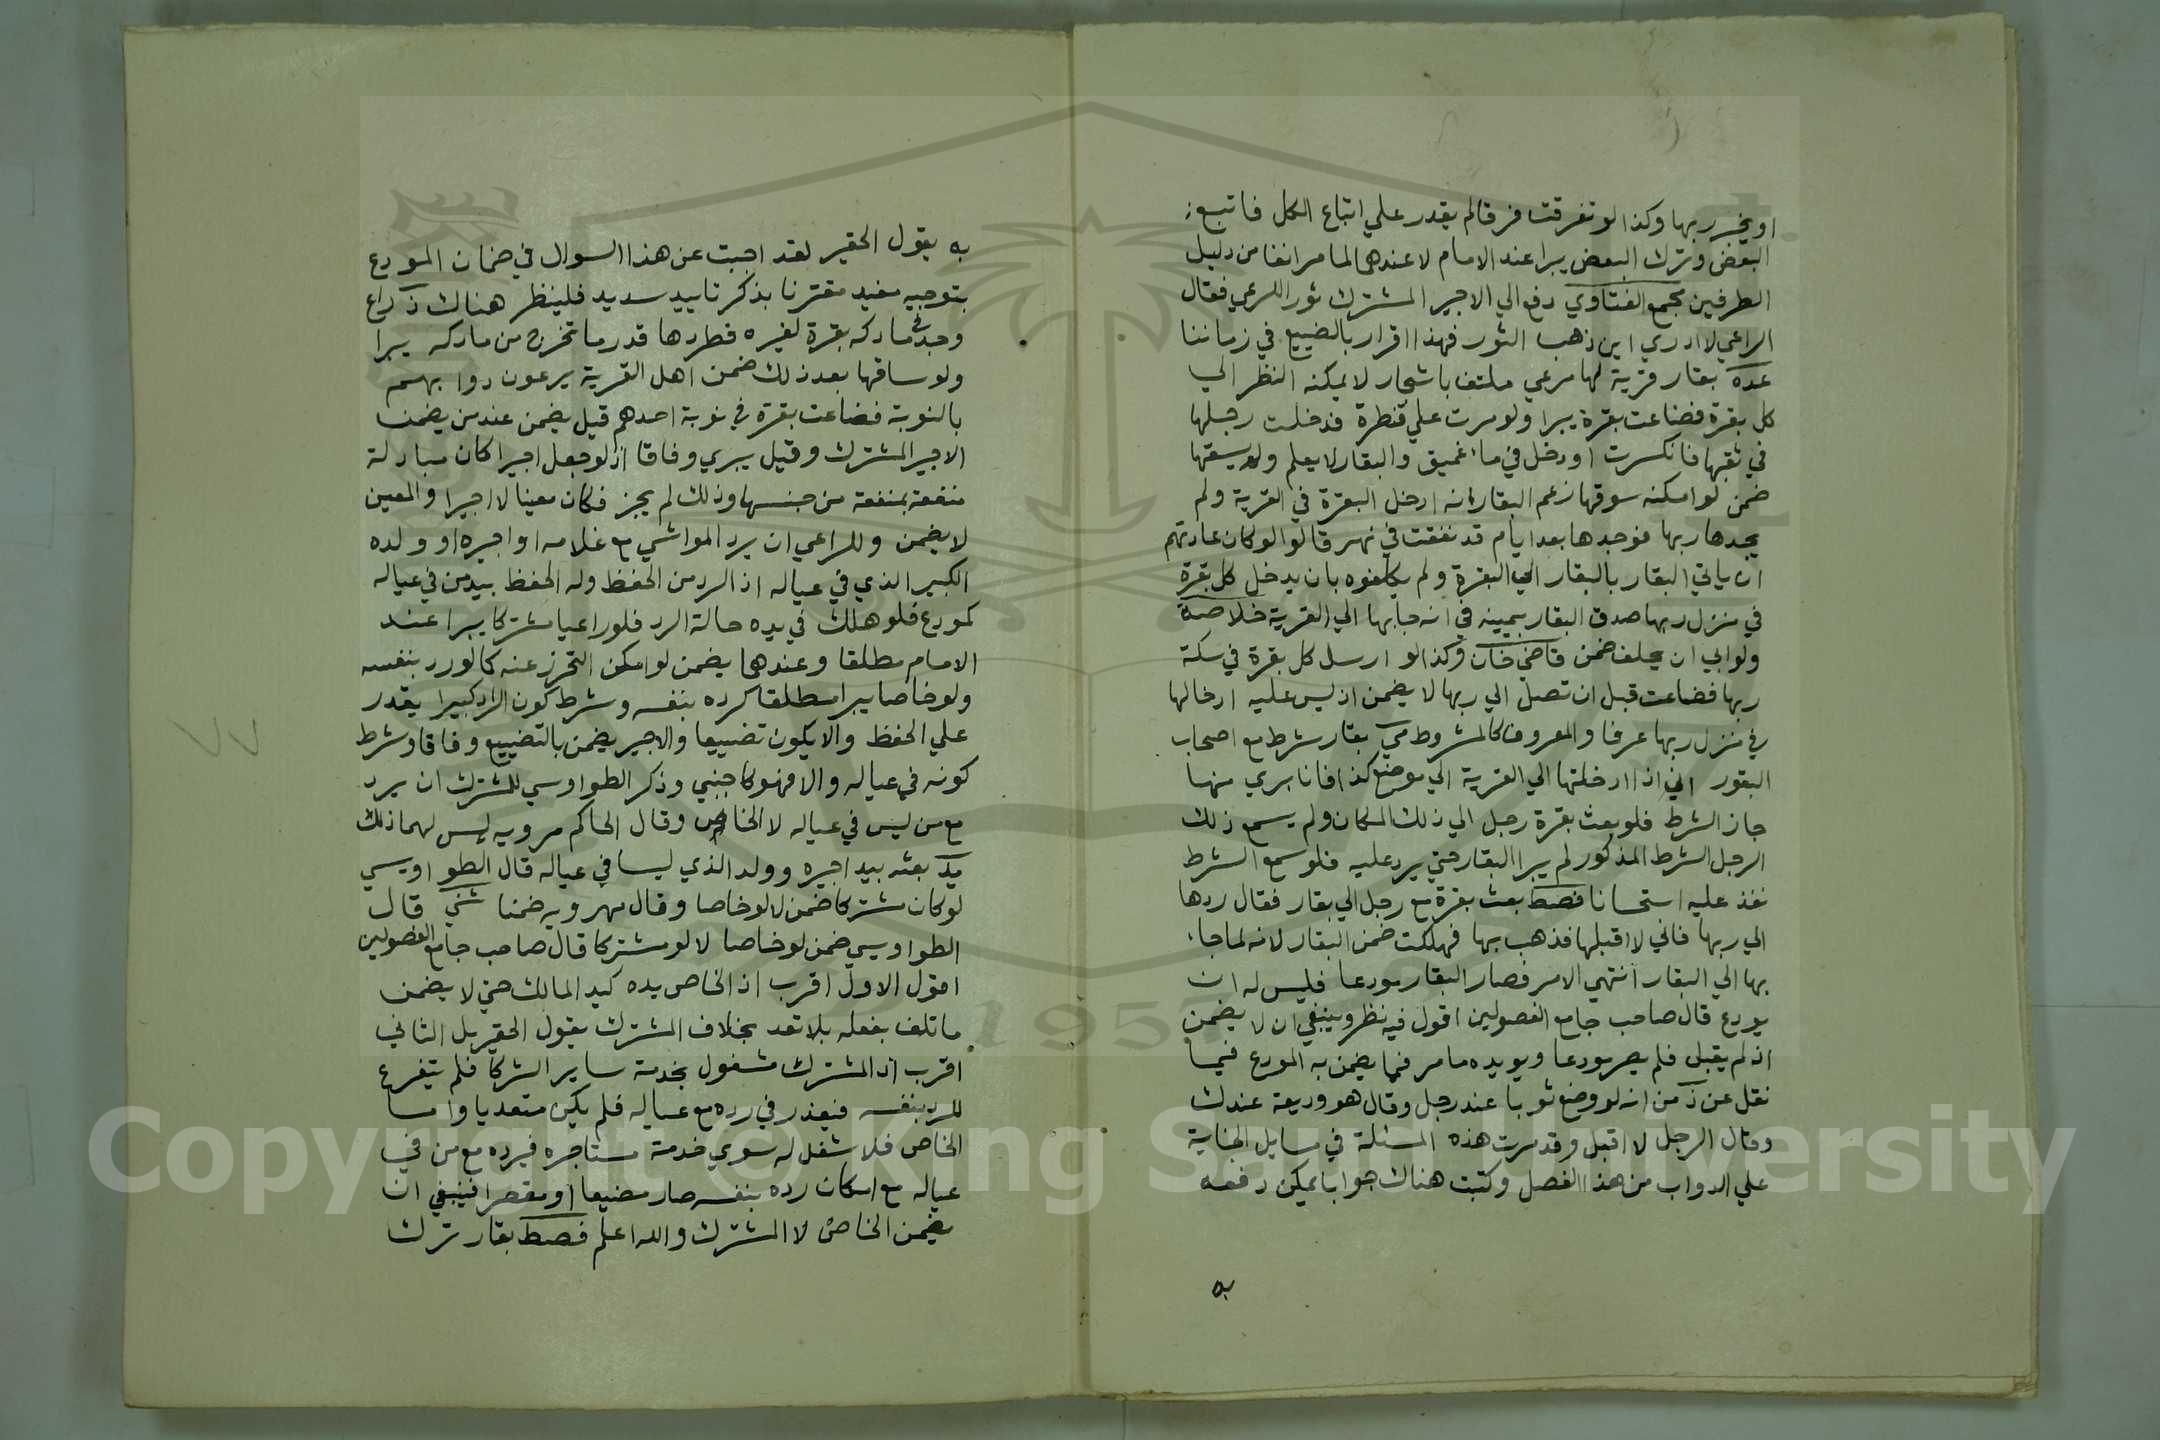 او يخبر ربها وكذا لو تفرقت فرقا لم يقدر علي اتباع الكل فاتبع
البعض وترك البعض يبرا عند الامام لا عندهما لما مر انفا من دليل
الطرفين مجمع الفتاوي دفع الي الاجير المشترك ثورا للرعي فقال
الراعي لا ادري اين ذهب الثور فهذا اقرار بالضييع في زماننا
عده بقار قرية لها مرعي ملتف باشجار لا يمكنه النظر الي
كل بقرة فضاعت بقرة يبرا ولو مرت علي قنطرة فدخلت رجلها
في ثقبها فانكسرت او دخل في ماء عميق والبقار لا يعلم ولم يسقها
ضمن لو امكنه سوقها زعم البقار انه ادخل البقرة في القرية ولم
يجدها ربها فوجدها بعد ايام قد نفقت في نهر قالوا لو كان عادتهم
ان ياتي البقار بالبقار الي البقرة ولم يكلفوه بان يدخل كل بقرة
في منزل ربها صدق البقار بيمينه في انه جا بها الي القرية خلاصة
ولو ابي ان يحلف ضمن قاضي خان وكذا لو ارسل كل بقرة في سكة
ربها فضاعت قبل ان تصل الي ربها لا يضمن اذ ليس عليه ادخالها
في منزل ربها عرفا والمعروف كالمشروط مي بقار شرط مع اصحاب
البقور اني اذا ادخلتها الي القرية الي موضع كذا فانا بري منها
جاز الشرط فلو بعث بقرة رجل الي ذلك المكان ولم يسمع ذلك
الرجل الشرط المذكور لم يبرا البقار حتي يرد عليه فلو سمع الشرط
نفذ عليه استحسانا فصط بعث بقرة مع رجل الي بقار فقال ردها
الي ربها فاني لا اقبلها فذهب بها فهلكت ضمن البقار لانه لما جاء
بها الي البقار انتهي الامر فصار البقار مودعا فليس له ان
يودع قال صاحب جامع الفصولين اقول فيه نظر وينبغي ان لا يضمن
اذ لم يقبل فلم يصر مودعا ويويده ما مر فيما يضمن به المودع فيما
نقل عن ذ من انه لو وضع ثوبا عند رجل وقال هو وديعة عندك
وقال الرجل لا اقبل وقد مرت هذه المسئلة في مسايل الجناية
علي الدواب من هذا الفصل وكتبت هناك جوابا يمكن دفعه
به
به يقول الحقير لقد اجبت عن هذا السوال في ضمان المودع
بتوجيه مفيد مقترنا بذكر تاييد سديد فلينظر هناك ذ راع
وجد في ماركه بقرة لغيره فطردها قدر ما تخرج من ماركه يبرا
ولو ساقها بعد ذلك ضمن اهل القرية يرعون دوابهم
بالنوبة فضاعت بقرة في نوبة احدهم قيل يضمن عند من يضمن
الاجير المشترك وقيل يبري وفاقا اذ لو جعل اجيرا كان مبادلة
منفعة بمنفعة من جنسها وذلك لم يجز فكان معينا لا اجيرا والمعين
لا يضمن وللراعي ان يرد المواشي مع غلامه او اجيره او ولده
الكبير الذي في عياله اذ الرد من الحفظ وله الحفظ بيد من في عياله
كمودع فلو هلك في يده حالة الرد فلو راعيا مشتركا يبرا عند
الامام مطلقا وعندهما يضمن لو امكن التحرز عنه كما لو رد بنفسه
ولو خاصا يبرا مطلقا كرده بنفسه وشرط كون الراد كبيرا يقدر
علي الحفظ والا يكون تضييعا والاجير يضمن بالتضييع وفاقا وشرط
كونه في عياله والا فهو كاجنبي وذكر الطواويسي للمشترك ان يرد
مع من ليس في عياله لا الخاص وقال الحاكم مرويه ليس لهما ذلك
يد بعثه بيد اجيره وولد الذي ليسا في عياله قال الطواويسي
لو كان مشتركا ضمن لا لو خاصا وقال مهرويه ضمنا شخي قال
الطواويسي ضمن لو خاصا لا لو مشتركا قال صاحب جامع الفصولين
اقول الاول اقرب اذ الخاص يده كيد المالك حتي لا يضمن
ما تلف بفعله بلا تعد بخلاف المشترك يقول الحقير بل الثاني
اقرب اذ المشترك مشغول بخدمة ساير الشركا فلم يتفرغ
للرد بنفسه فيعذر في رده مع عياله فلم يكن متعديا واما
الخاص فلا شغل له سوي خدمة مستاجره فيرده مع من في
عياله مع امكان رده بنفسه صار مضيعا او مقصرا فينبغي ان
يضمن الخاص لا المشترك والله اعلم فصط بقار ترك
٧٧
1957
Copyright © King Saud University